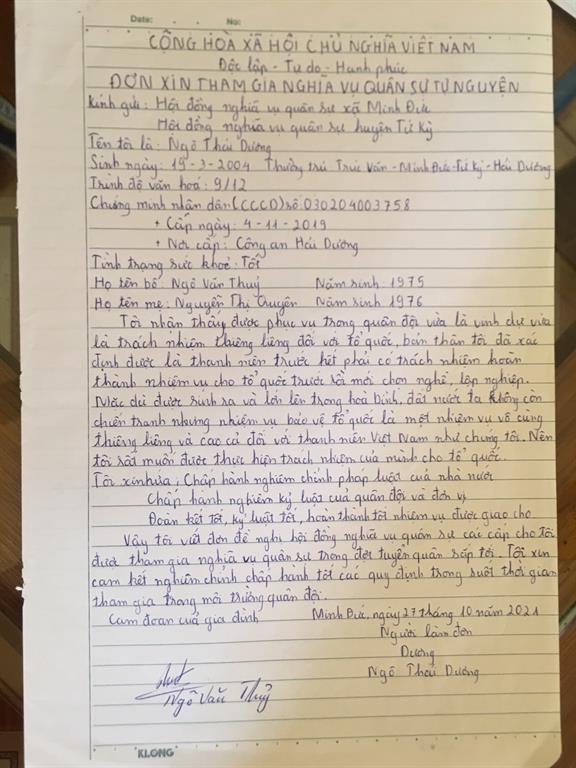 Date: No:
CỘNG HÒA XÃ HỘI CHỦ NGHĨA VIỆT NAM
Độc lập - Tự do - Hạnh phúc
ĐƠN XIN THAM GIA NGHĨA VỤ QUÂN SỰ TỰ NGUYỆN
Kính gửi: Hội đồng nghĩa vụ quân sự xã Minh Đức
Hội đồng nghĩa vụ quân sự huyện Tứ Kỳ
Tên tôi là: Ngô Thái Dương
Sinh ngày: 19-3-2004 Thường trú Trúc Văn - Minh Đức - Tứ Kỳ - Hải Dương
Trình độ văn hoá: 9/12
Chứng minh nhân dân (CCCD) số: 030204003758
+ Cấp ngày: 4-11-2019
+ Nơi cấp: Công an Hải Dương
Tình trạng sức khoẻ: Tốt
Họ tên bố: Ngô Văn Thuỷ Năm sinh: 1975
Họ tên mẹ: Nguyễn Thị Chuyên Năm sinh 1976
Tôi nhận thấy được phục vụ trong quân đội vừa là vinh dự vừa
là trách nhiệm thiêng liêng đối với tổ quốc, bản thân tôi đã xác
định được là thanh niên trước hết phải có trách nhiệm hoàn
thành nhiệm vụ cho tổ quốc trước rồi mới chọn nghề, lập nghiệp.
Mặc dù được sinh ra và lớn lên trong hoà bình, đất nước ta không còn
chiến tranh nhưng nhiệm vụ bảo vệ tổ quốc là một nhiệm vụ vô cùng
thiêng liêng và cao cả đối với thanh niên Việt Nam như chúng tôi. Nên
tôi rất muốn được thực hiện trách nhiệm của mình cho tổ quốc.
Tôi xin hứa: Chấp hành nghiêm chỉnh pháp luật của nhà nước
Chấp hành nghiêm kỷ luật của quân đội và đơn vị
Đoàn kết tốt, kỷ luật tốt, hoàn thành tốt nhiệm vụ được giao cho
Vậy tôi viết đơn đề nghị hội đồng nghĩa vụ quân sự các cấp cho tôi
được tham gia nghĩa vụ quân sự trong đợt tuyển quân sắp tới. Tôi xin
cam kết nghiêm chỉnh chấp hành tốt các quy định trong suốt thời gian
tham gia trong môi trường quân đội.
Cam đoan của gia đình Minh Đức, ngày 27 tháng 10 năm 2021
Người làm đơn
Dương
Ngô Thái Dương
Ngô Văn Thuỷ
KLONG